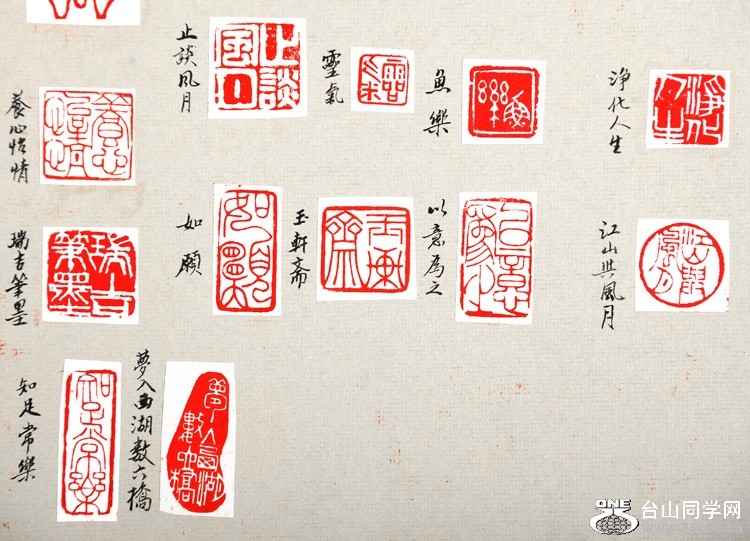 止談风月
靈氣
魚樂
净化人生
養心怡情
如願
玉軒斋
以意為之
江山與風月
瑞吉筆墨
知足常樂
夢入西湖数六橋
ONE
台山同学网